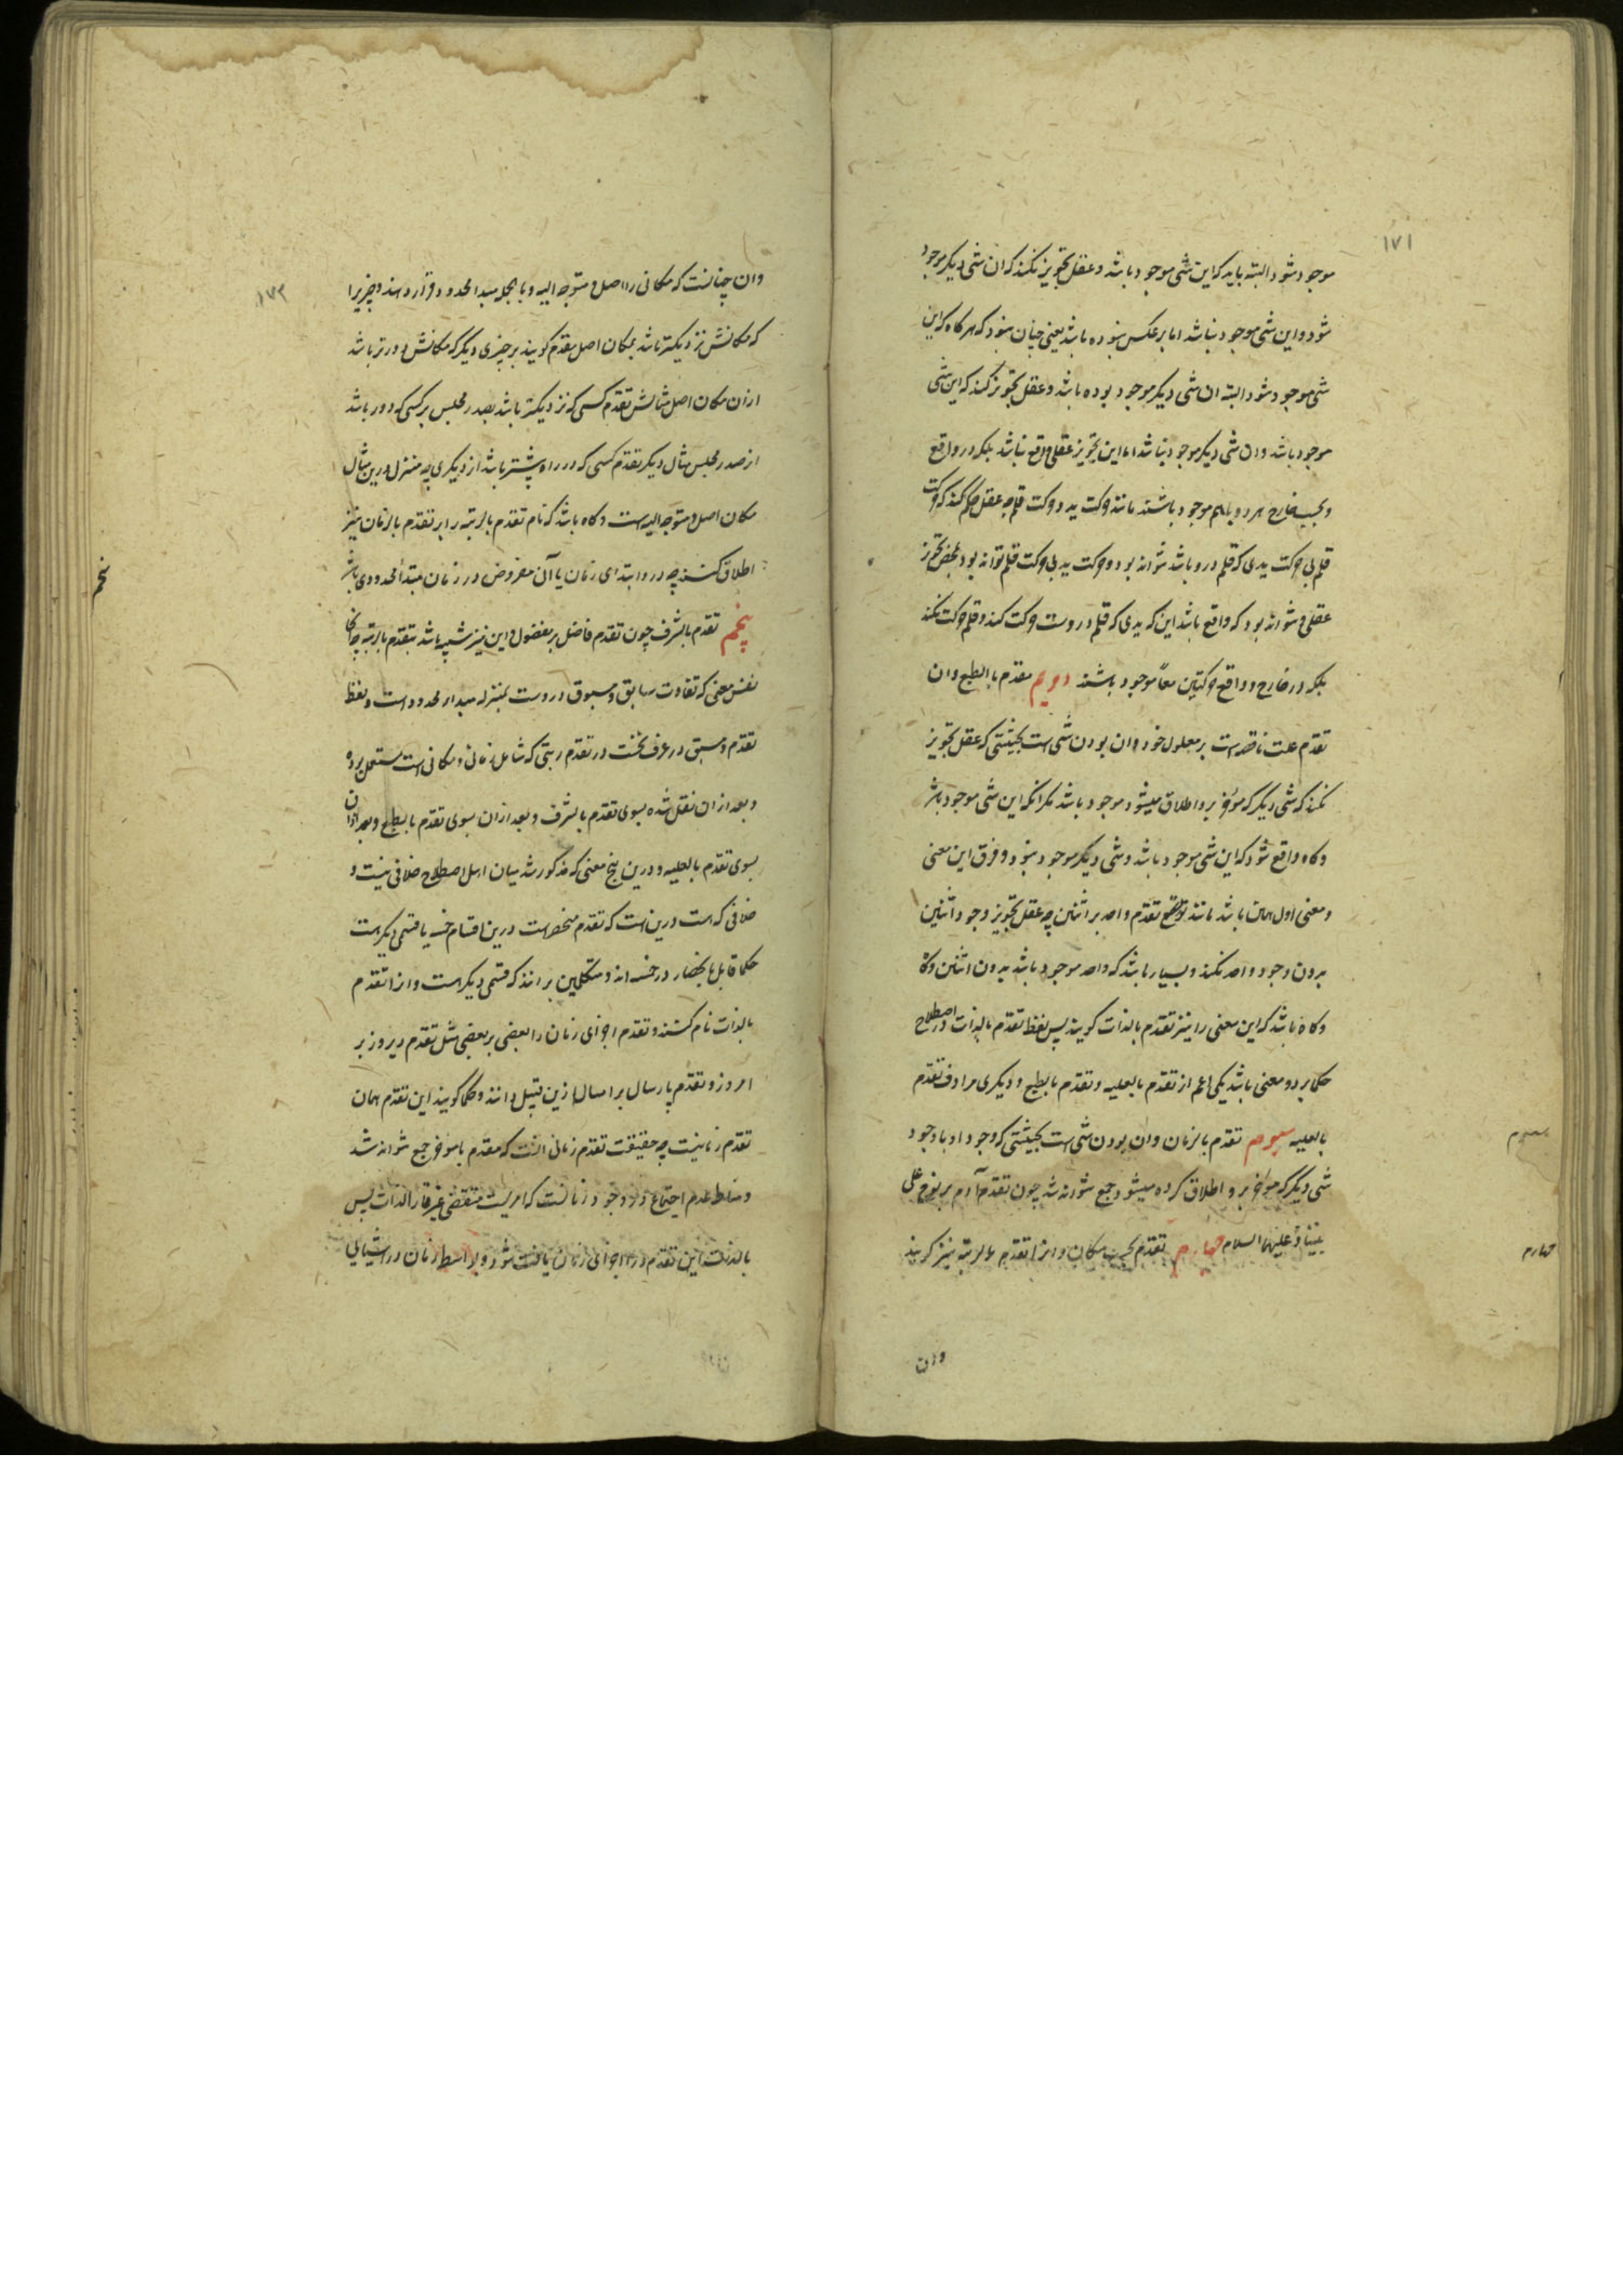 ۱۷۱
موجود شود البته باید که این شی موجود باشد و عقل تجویز نکند که ان شی دیکر موجود
شود و این شی موجود نباشد اما بر عکس نبوده باشد یعنی چنان نبود که هرکاه که این
شی موجود شود البته ان شی دیکر موجود بوده باشد و عقل تجویز کند که این شی
موجود باشد و ان شی دیکر موجود نباشد اما این تجویز عقلی واقع نباشد بلکه در واقع
و بحسب خارج هر دو با هم موجود باشند مانند حرکت ید و حرکت قلم چه عقل حکم کند که حرکت
قلم بی حرکت یدی که قلم درو باشد نتواند بود و حرکت ید بی حرکت قلم تواند بود بمحض تجویز
عقلی و نتواند بود که واقع باشد این که یدی که قلم دروست حرکت کند و قلم حرکت نکند
بلکه در خارج و واقع حرکتین معاً موجود باشند دویم تقدم بالطبع و ان
تقدم علت ناقصه است بر معلول خود و ان بودن شی است بحیثیتی که عقل تجویز
نکند که شی دیکر که مؤخر برو اطلاق میشود موجود باشد مکر انکه این شی موجود باشد
و کاه واقع شود که این شی موجود باشد و شی دیکر موجود نبود و فرق این معنی
و معنی اول همان باشد مانند تقدم واحد بر اثنین چه عقل تجویز وجود اثنین
بدون وجود واحد نکند و بسیار باشد که واحد موجود باشد بدون اثنین وکاه
و کاه باشد که این معنی را نیز تقدم بالذات کویند پس لفظ تقدم بالذات در اصطلاح
حکما بر دو معنی باشد یکی اعم از تقدم بالعلیه و تقدم بالطبع و دیکری مرادف تقدم
بالعلیه سیوم تقدم بالزمان و ان بودن شی است بحیثیتی که وجود او با وجود
شی دیکر که مؤخر برو اطلاق کرده میشود جمع نتواند شد چون تقدم آدم بر نوح علی
نبینا و علیهما السلام چهارم تقدم بحسب مکان و انرا تقدم بالرتبه نیز کویند
سیوم
چهارم
وان
۱۷۲
وان چنانست که مکانی را اصل و متوجه الیه و بالجمله مبدا محدود قرار دهند و چیزیرا
که مکانش نزدیکتر باشد بمکان اصل مقدم کویند بر چیزی دیکر که مکانش دورتر باشد
ازان مکان اصل مثالش تقدم کسی که نزدیکتر باشد بصدر مجلس بر کسی که دور باشد
از صدر مجلس مثال دیکر تقدم کسی که در راه پیشتر باشد از دیکری چه منزل درین مثال
مکان اصل و متوجه الیه است و کاه باشد که نام تقدم بالرتبه را بر تقدم بالزمان نیز
اطلاق کنند چه درو ابتدای زمان یا آن مفروض در زمان مبدأ محدودی باشد
پنجم تقدم بالشرف چون تقدم فاضل بر مفضول و این نیز شبیه باشد بتقدم بالرتبه چه انکا
نفس معنی که تفاوت سابق و مسبوق دروست بمنزله مبدا محدود است و لفظ
تقدم و سبق در عرف نخست در تقدم رتبتی که شامل زمانی و مکانی است مستعمل بوده
و بعد ازان نقل شده بسوی تقدم بالشرف و بعد ازان بسوی تقدم بالطبع و بعد ازان
بسوی تقدم بالعلیه و درین پنج معنی که مذکور شد میان اهل اصطلاح خلافی نیست و
خلافی که هست درین است که تقدم منحصر است درین اقسام خمسه یا قسمی دیکر هست
حکما قایل بانحصار در خمسه اند و متکلمین برانند که قسمی دیکر هست و انرا تقدم
بالذات نام کنند و تقدم اجزای زمان را بعضی بر بعضی مثل تقدم دیروز بر
امروز و تقدم پارسال بر امسال ازین قبیل دانند و حکما کویند این تقدم همان
تقدم زمانیست چه حقیقت تقدم زمانی انست که مقدم با مؤخر جمع نتواند شد
و مناط عدم اجتماع در وجود زمانست که امریست متقضی غیر قار الذات پس
بالذات این تقدم در اجزای زمان یافت شود و بواسطه زمان در اشیائی
پنجم